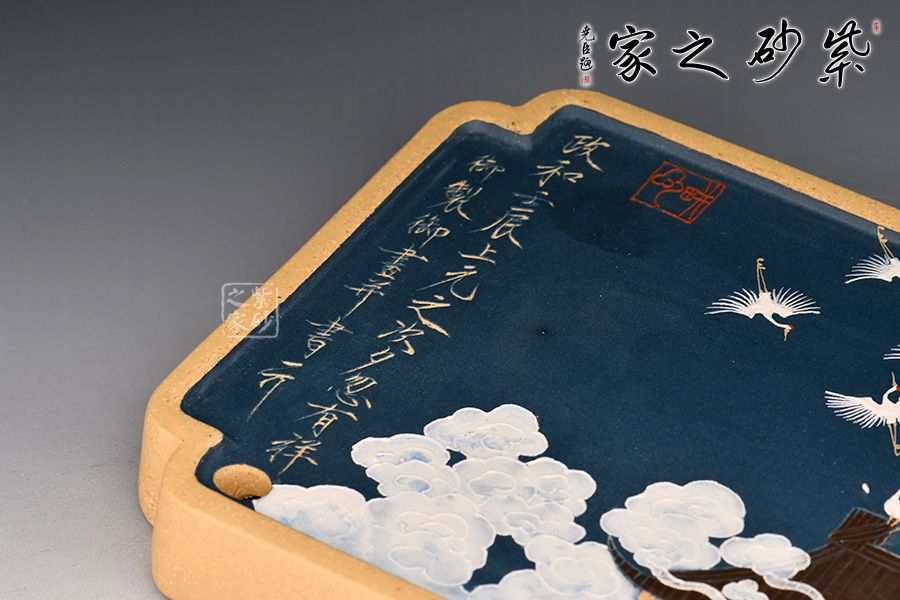 紫砂之家
堯臣題
政和壬辰上元之次夕忽有祥
御製御畫并書
紫砂之家